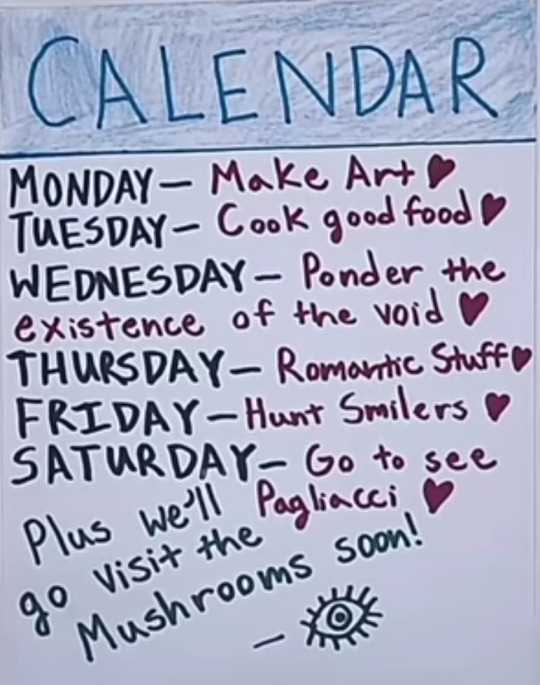 CALENDAR
MONDAY— Make Art ♥
TUESDAY— Cook good food ♥
WEDNESDAY— Ponder the
existence of the void ♥
THURSDAY— Romantic Stuff ♥
FRIDAY— Hunt Smilers ♥
SATURDAY— Go to see
Pagliacci ♥
Plus we'll
go visit the
Mushrooms soon!
—